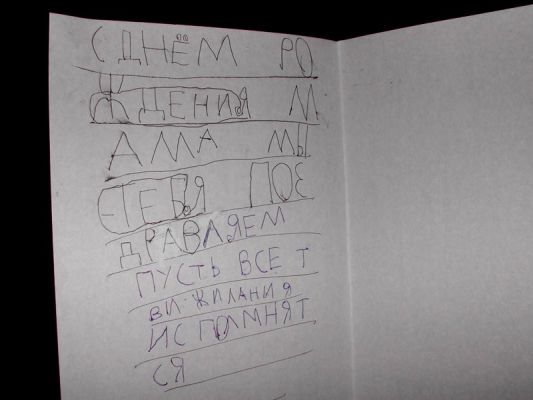 С ДНЁМ РО
ЖДЕНИЯ М
АМА МЫ
ТЕБЯ ПОЕ
ДРАВЛЯЕМ
ПУСТЬ ВСЕ Т
ВИ ЖИЛАНИЯ
ИСПОЛМНЯТ
СЯ